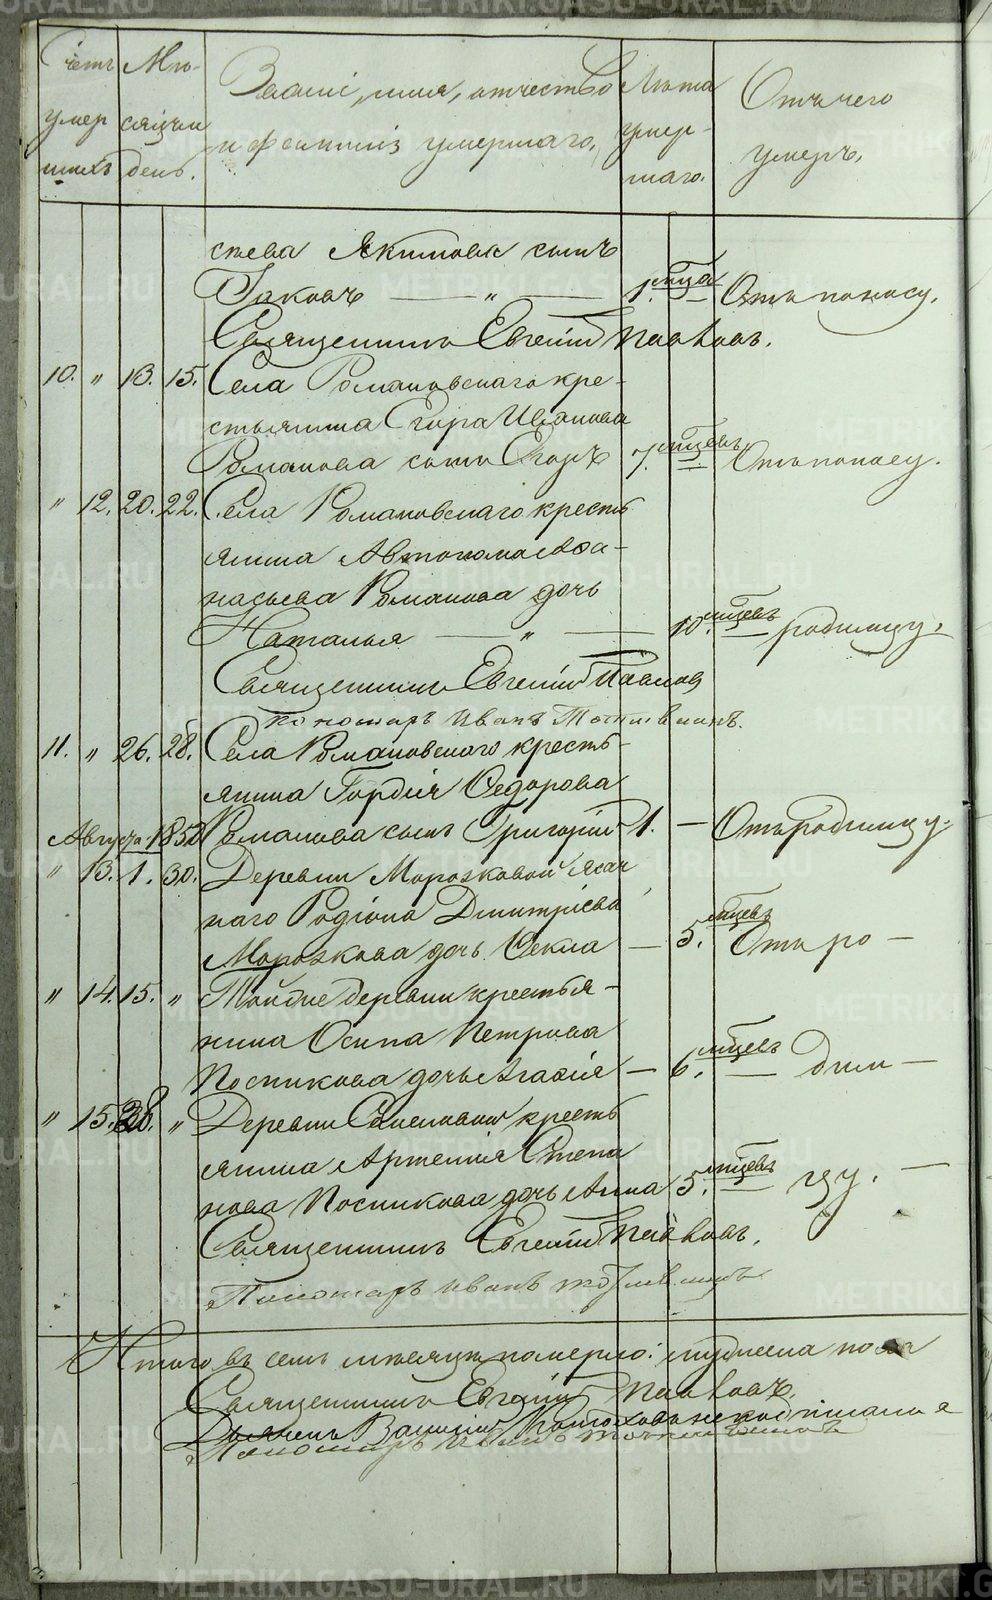 Счетъ умер шихъ
Мѣ- сяцъ и день.
Званіе, имя, отчество
и фамилія умершаго.
Лѣта умер- шаго.
Отъ чего умеръ.
Якимова сынъ
Іаковъ — " — 1. мѣца Отъ поносу.
Священникъ Евгеній Павловъ.
10. " 13. 15. Села Романовскаго кре-
стьянина Егора Иванова
Романова сынъ Егоръ 7. мѣцевъ Отъ поносу.
" 12. 20. 22. Села Романовскаго кресть
янина Автонома Афа-
насьева Романова дочь
Наталья — " — 10. мѣцевъ родимцу.
Священникъ Евгеній Павловъ
пономарь Иванъ
11. " 26. 28. Села Романовскаго кресть-
янина Гордія Ѳедорова
Романова сынъ Григорій 1. — Отъ родимцу.
Августъ 185
" 13. 1. 30. Деревни Морозковой ясач
наго Родіона Дмитріева
Морозкова дочь Ѳекла — 5. мѣцевъ Отъ ро —
" 14. 15. " Тойже деревни крестья-
нина Осипа Петрова
Посникова дочь Агафія — 6. мѣцевъ дим —
" 15. " Деревни кресть
янина Артемія Степа
нова Посникова дочь Анна 5. мѣцевъ цу. —
Священникъ Евгеній Павловъ.
Пономарь Иванъ
Итого въ семъ мѣсяцѣ померло: мужеска пола
Священникъ Евгеній Павловъ.
Дьяконъ Василій
Пономарь Иванъ
METRIKI.GASO-URAL.RU